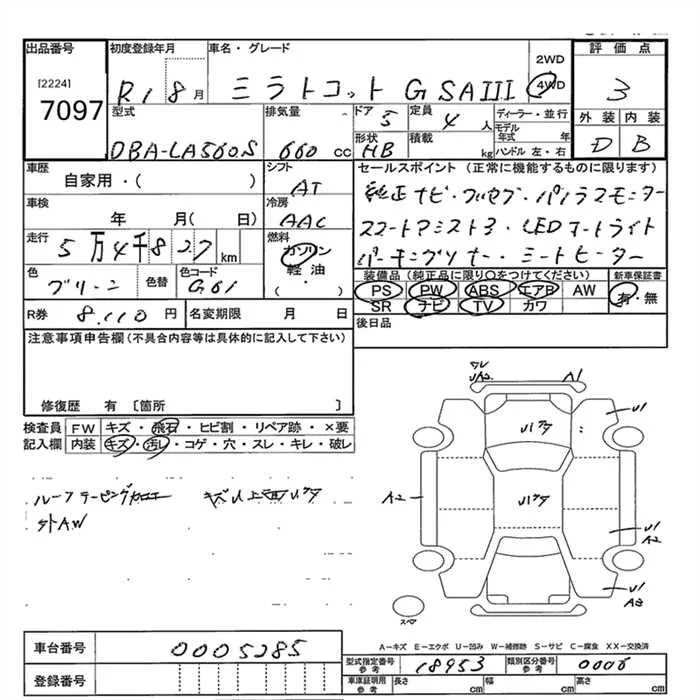 出品番号 初度登録年月 車名・グレード 評価点
[2224]
7097
R1 8月 ミラトコット G SAIII 2WD 4WD 3
型式 排気量 ドア 5 定員 4人 ディーラー・並行 外装 内装
DBA-LA560S 660cc 形状 HB 積載 kg モデル年式 年 ハンドル 左・右 D B
車歴 シフト セールスポイント (正常に機能するものに限ります)
自家用・( ) AT 純正ナビ・フルセグ・パノラマモニター
車検 冷房
年 月( 日) AAC スマートアシスト3・LEDオートライト
走行 燃料
5万4千827km ガソリン パーキングソナー・シートヒーター
色 色替 色コード 軽油 装備品 (純正品に限り○をつけてください) 新車保証書
グリーン G61 ( ・ ) PS PW ABS エアB AW 有・無
SR ナビ TV カワ
R券 8.110円 名変期限 月 日 後日品
注意事項申告欄 (不具合内容等は具体的に記入して下さい)
修復歴 有 [箇所 ]
検査員 FW キズ・飛石・ヒビ割・リペア跡・×要
記入欄 内装 キズ・汚レ・コゲ・穴・スレ・キレ・破レ
A1
U1
A2
U1
A2
U1
A3
外AW
スペア
A-キズ E-エクボ U-凹み W-補修跡 S-サビ C-腐食 XX-交換済
車台番号 0005285 型式指定番号 参考 18953 類別区分番号 参考 0006
登録番号 車庫証明用 参考 長さ cm 幅 cm 高さ cm